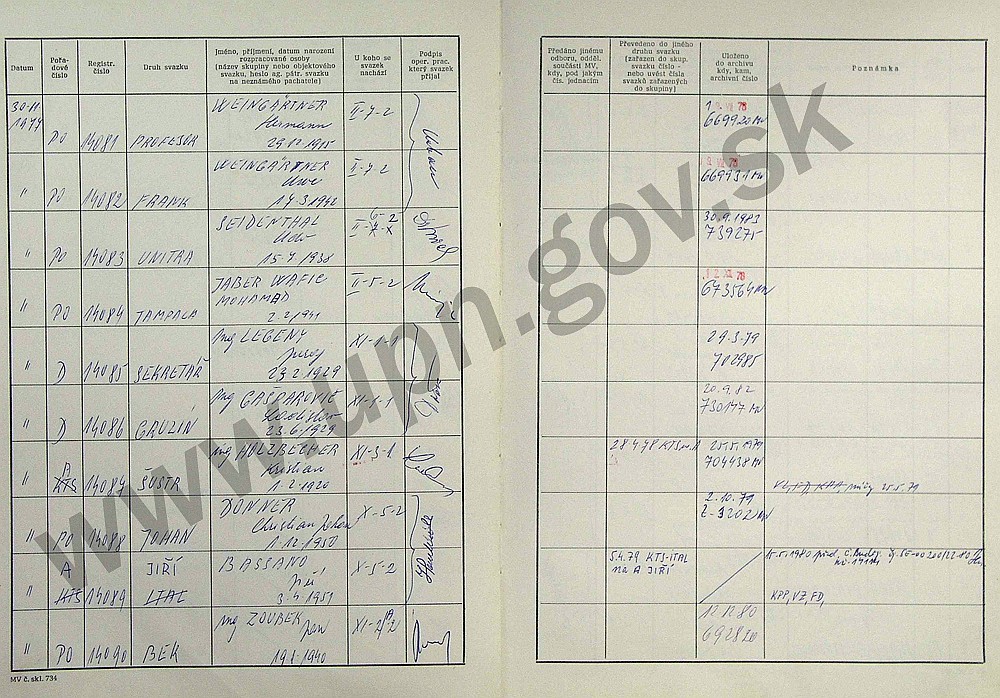 Datum
Pořa-
dové
číslo
Registr.
číslo
Druh svazku
Jméno, příjmení, datum narození
rozpracované osoby
(název skupiny nebo objektového
svazku, heslo ag. pátr. svazku
na neznámého pachatele)
U koho se
svazek
nachází
Podpis
oper. prac.
který svazek
přijal
Předáno jinému
odboru, odděl.
součásti MV,
kdy, pod jakým
čís. jednacím
Převedeno do jiného
druhu svazku
(zařazen do skup.
svazku číslo -
nebo uvést čísla
svazků zařazených
do skupiny)
Uloženo
do archivu
kdy, kam,
archivní číslo
Poznámka
30.11.
1977 PO 14081 PROFESOR
WEINGÄRTNER
Hermann
29.12.1905
II-7-2
VII 78
669920 MV
" PO 14082 FRANK
WEINGÄRTNER
Uwe
17.3.1942
II-7-2
VII 78
669931 MV
" PO 14083 UNITRA
SEIDENTHAL
Udo
15.7.1938
6-2
30.9.1983
739275
" PO 14084 TAMPALA
JABER WAFIC
MOHAMAD
2.2.1941
II-5-2
673564 MV
" D 14085 SEKRETÁŘ
Ing LEGENY
Juraj
23.2.1929
XI-1-1
29.3.79
702985
" D 14086 GRUZIN
Ing GAŠPAROVIČ
Ladislav
23.6.1929
XI-1-1
20.9.82
730147 MV
A
KTS
" 14087 ŠUSTR
Ing HOLZBECHER
Kristian
1.2.1920
XI-3-1
28.4.78 KTS na A
25.5.1979
704438 MV
VZ, FD, KPA 25.5.79
" PO 14088 JOHAN
DONNER
Christian Johan
1.12.1950
X-5-2
2.10.79
Z-3202 MV
A JIŘÍ
" KTS 14089 ITAL
BASSANO
Jiří
3.4.1951
X-5-2
5.4.79 KTS-ITAL
na A JIŘÍ
15.5.1980 před. Č. Buděj.
KPP, VZ, FD,
" PO 14090 BEK
Ing ZOUBEK
Jan
19.1.1940
10.12.80
692820
MV č. skl. 734
www.upn.gov.sk